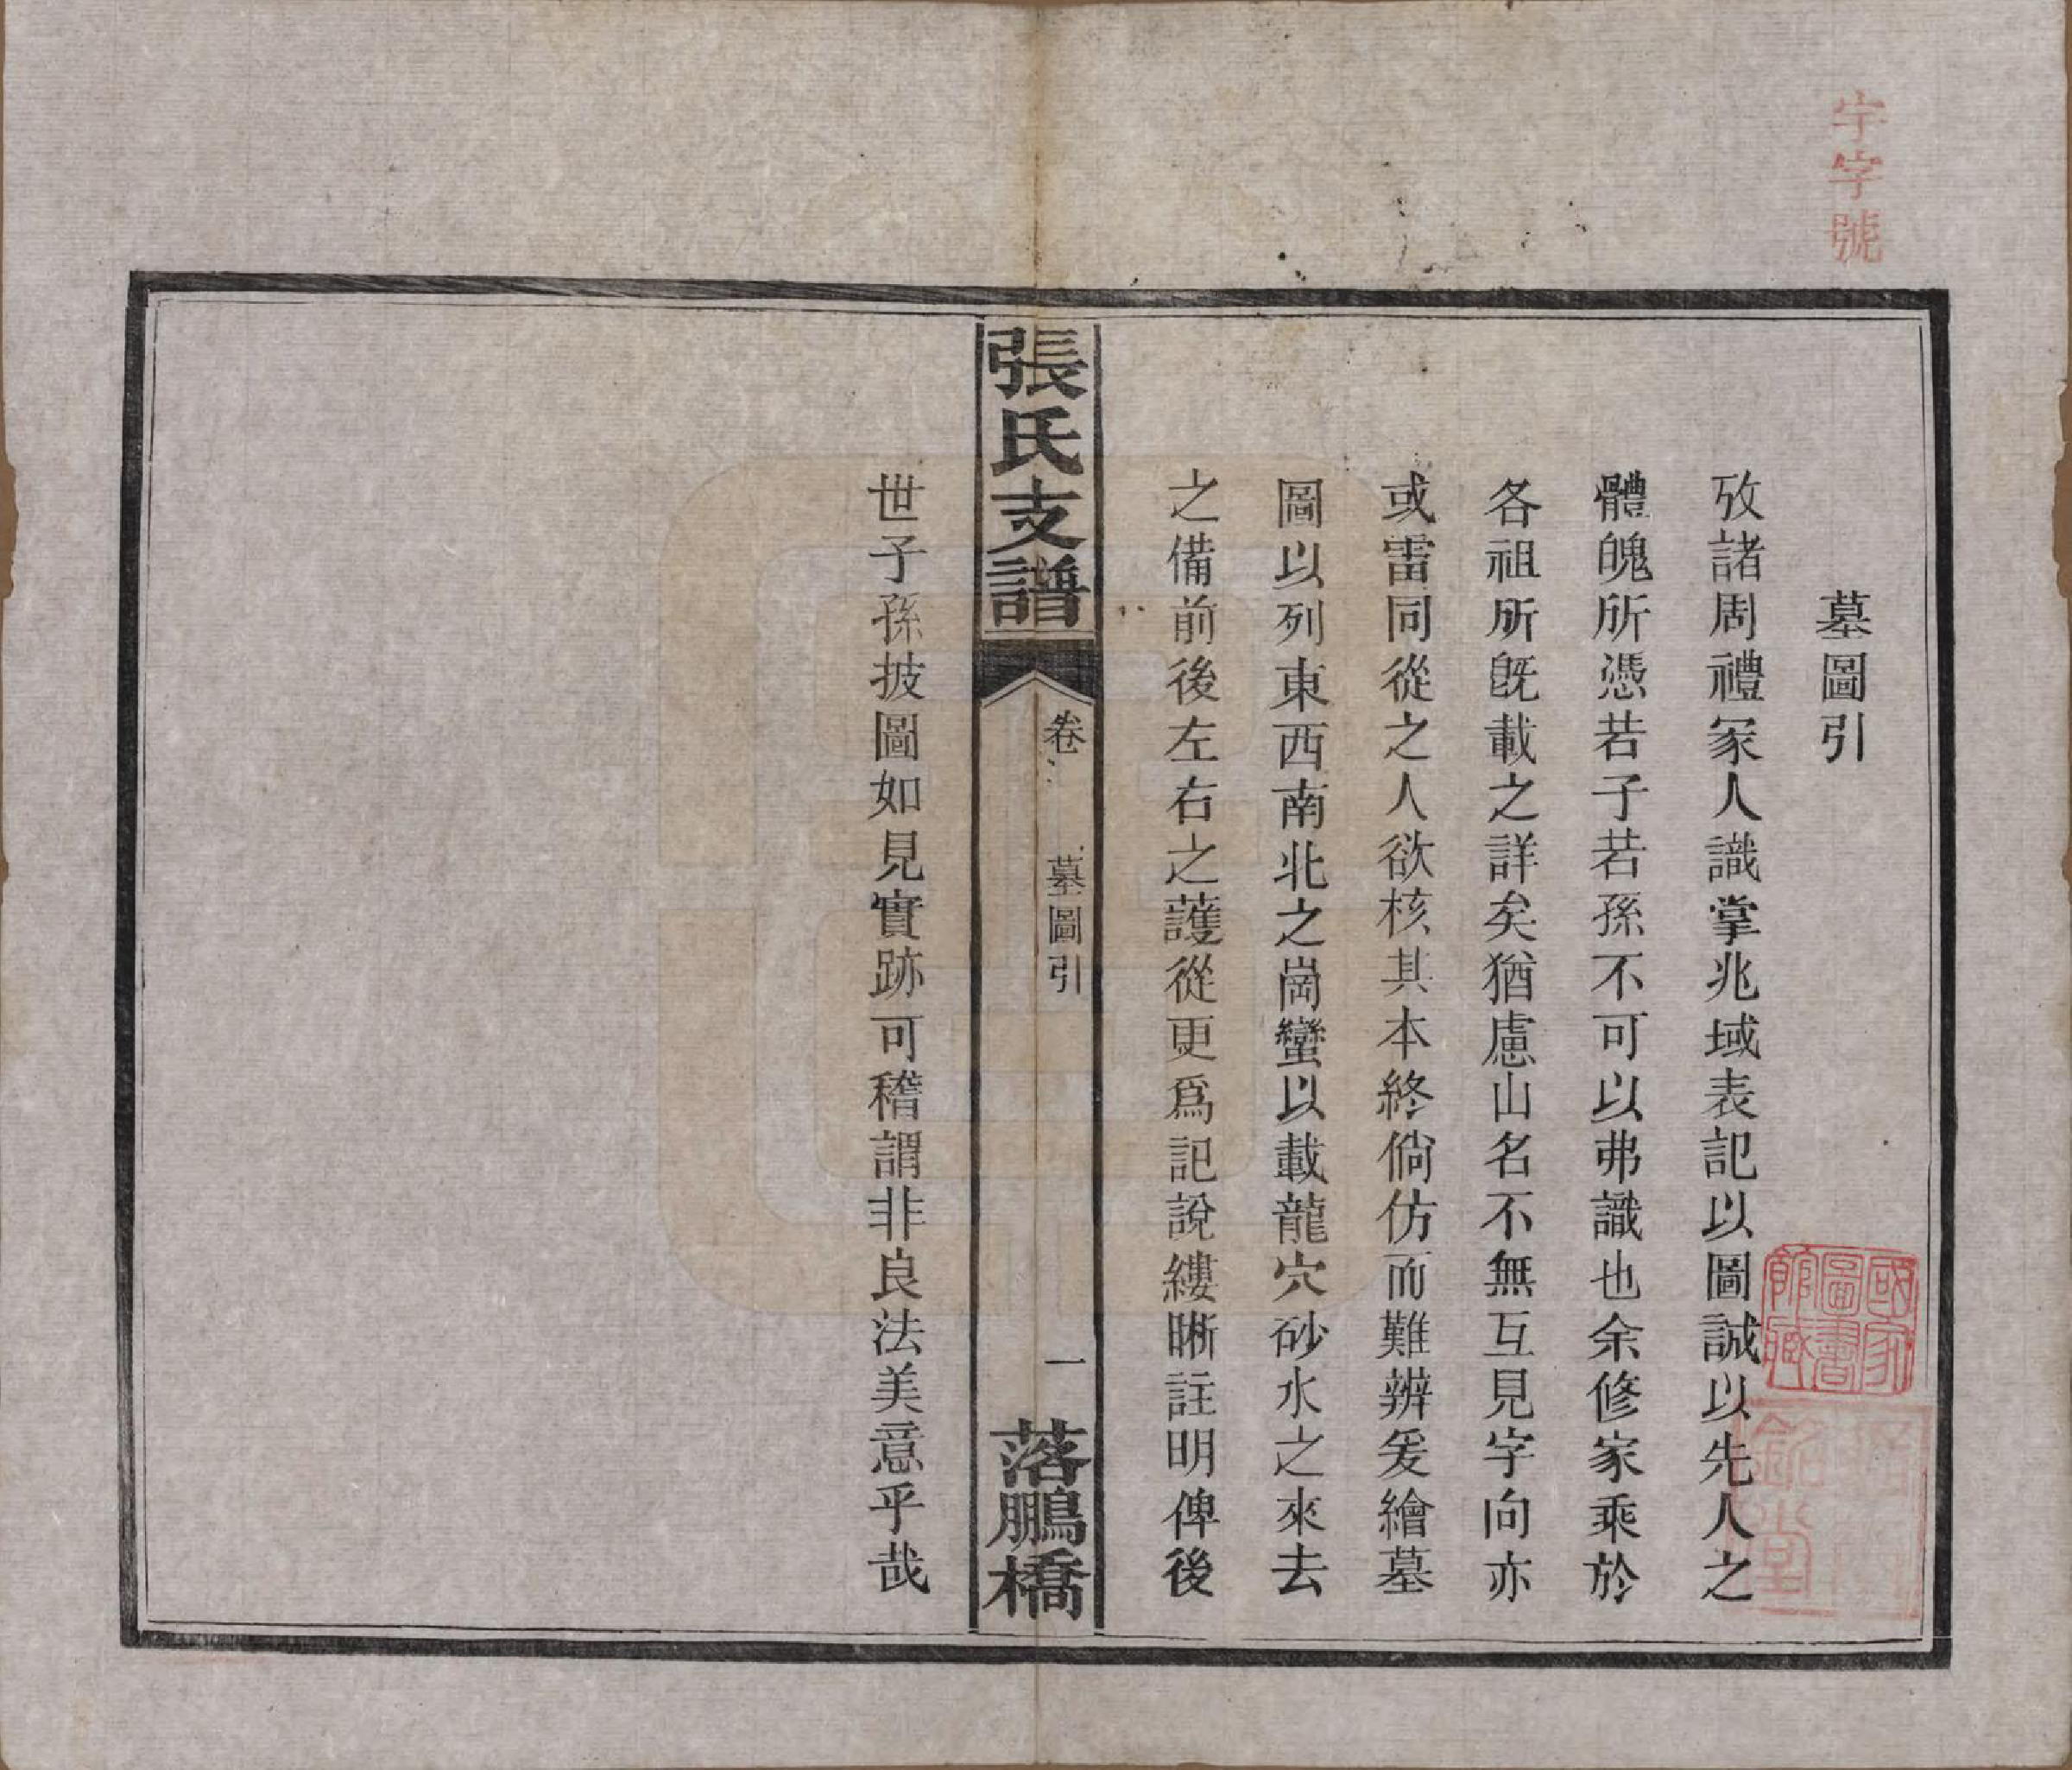 字字號
墓圖引
攷諸周禮冢人識掌兆域表記以圖誠以先人之
體魄所憑若子若孫不可以弗識也余修家乘於
各祖所旣載之詳矣猶慮山名不無互見字向亦
或雷同從之人欲核其本終倘仿而難辨爰繪墓
圖以列東西南北之崗巒以載龍穴砂水之來去
之備前後左右之護從更爲記說縷晰註明俾後
張氏支譜
卷
墓圖引
一
落鵬橋
世子孫披圖如見實跡可稽謂非良法美意乎哉
國家圖書館藏
銘堂